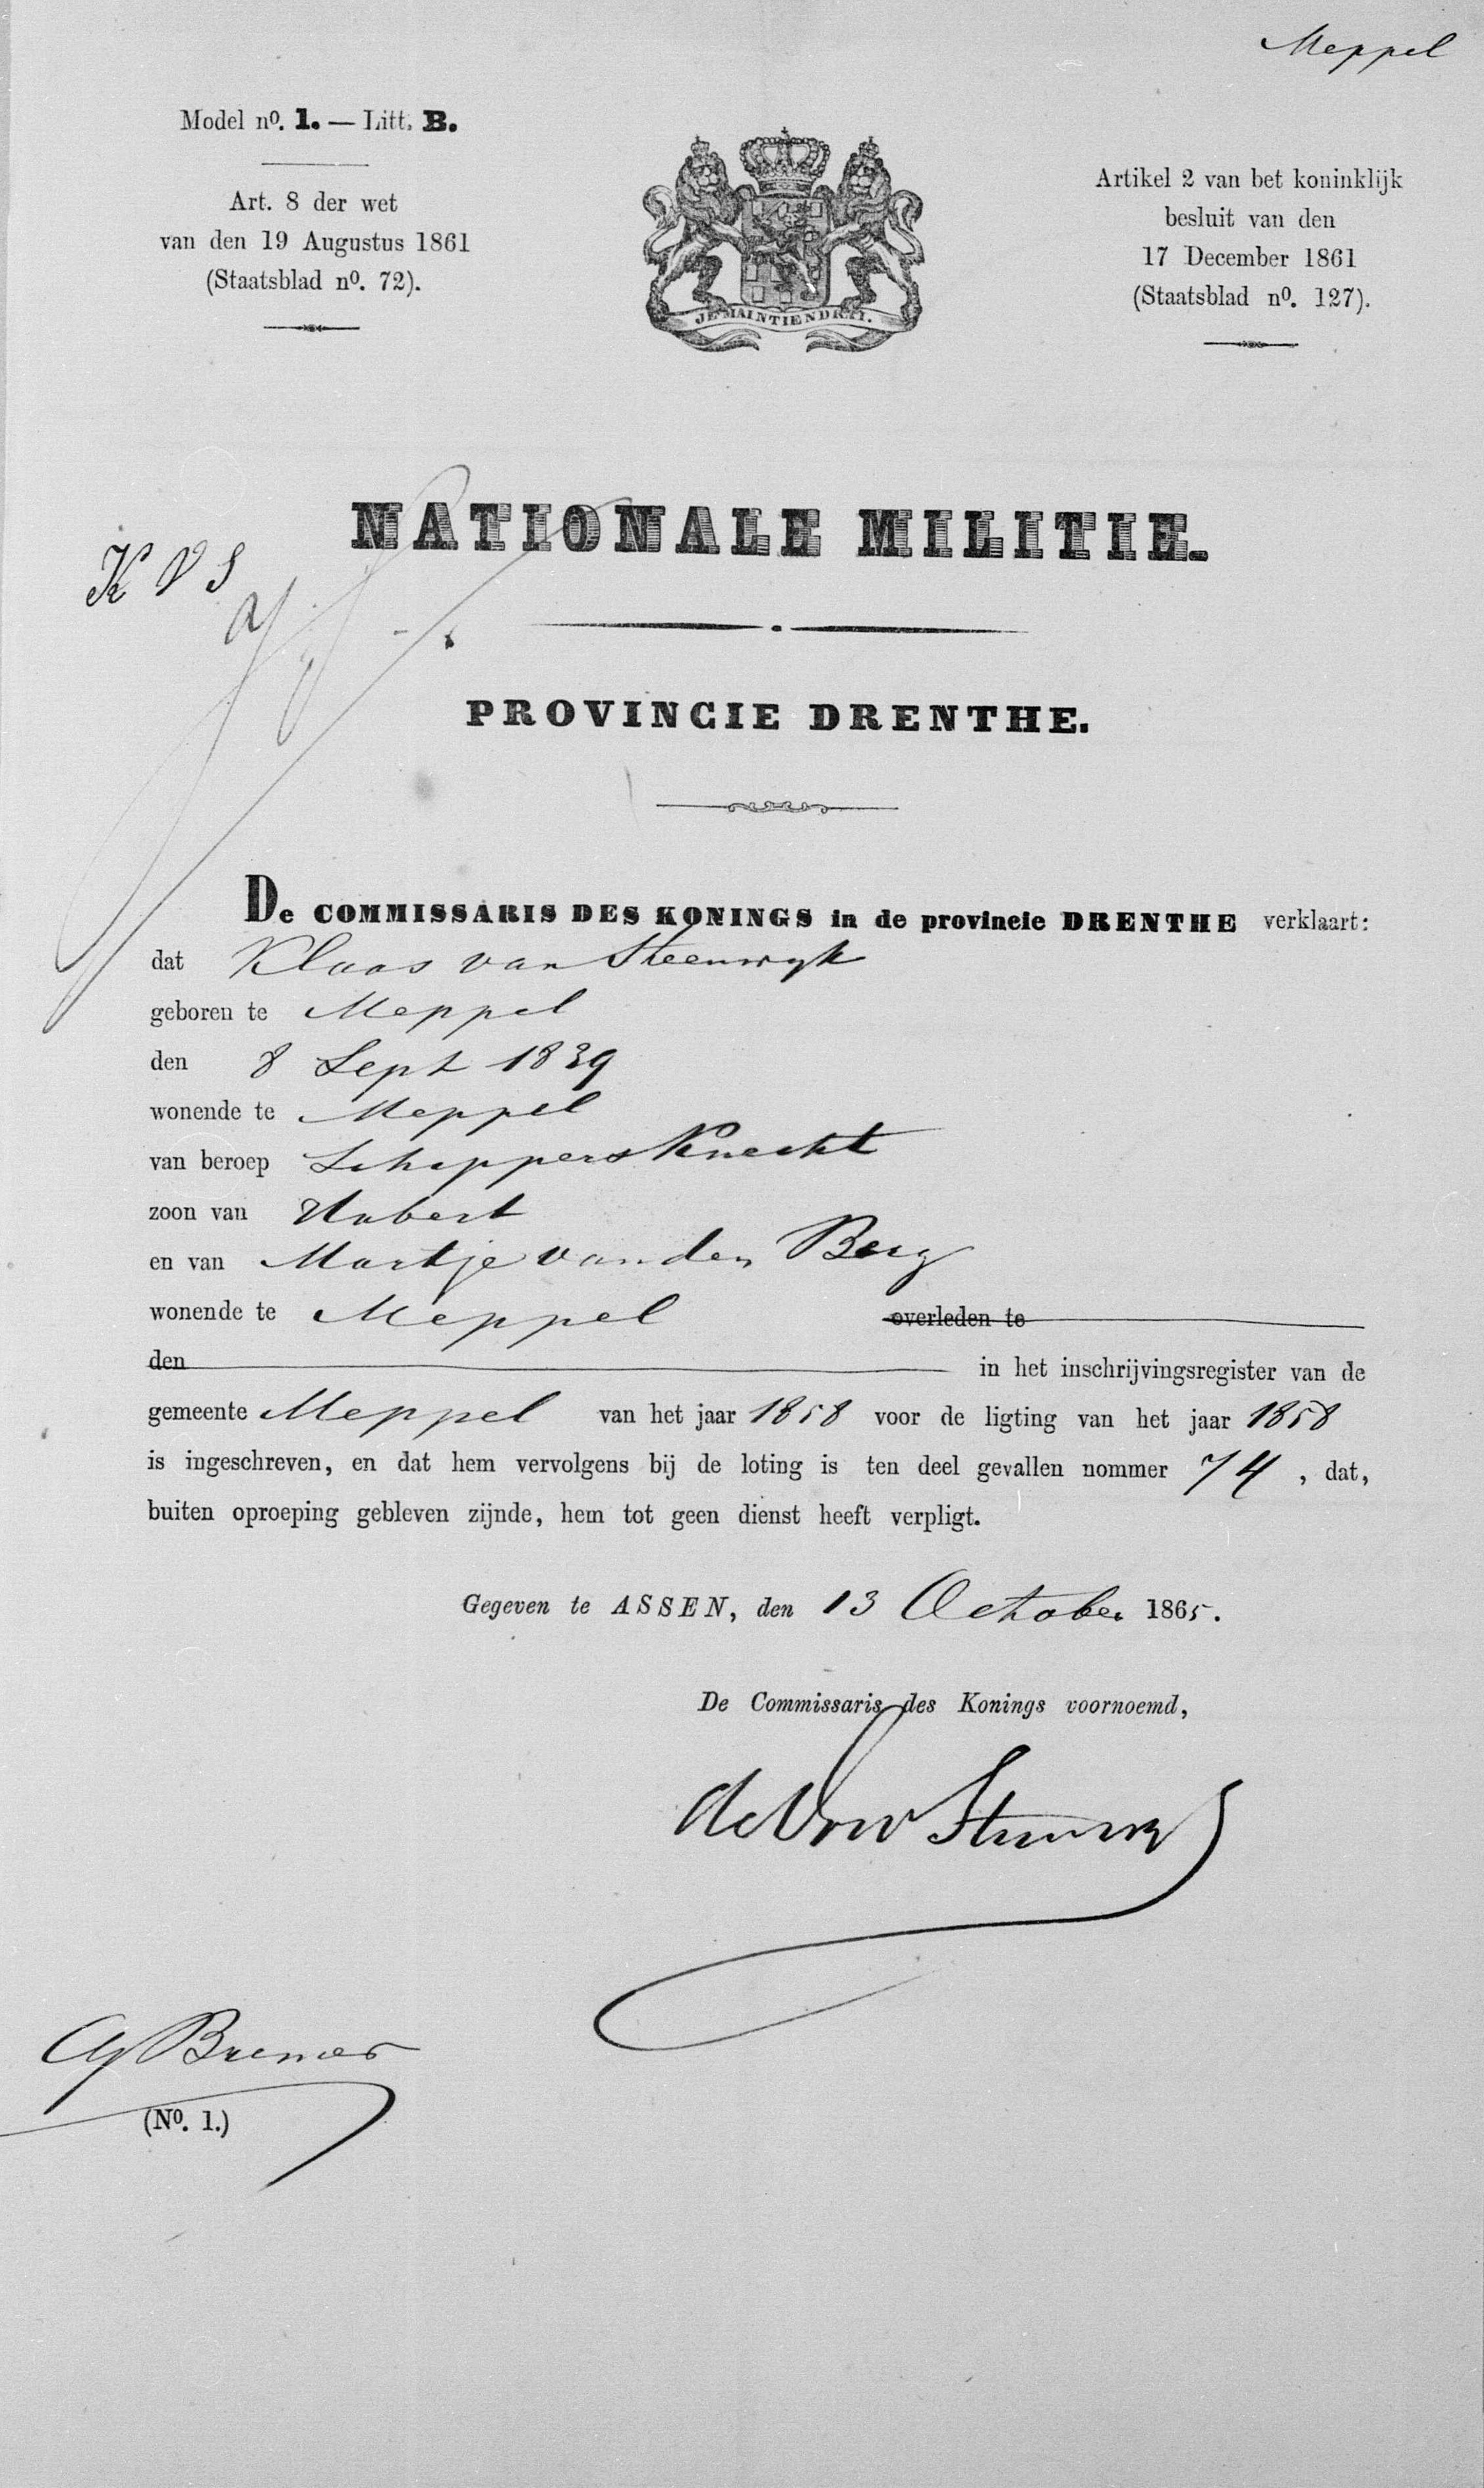 Meppel
Model no. 1. — Litt. B.
Art. 8 der wet
van den 19 Augustus 1861
(Staatsblad no. 72).
JE MAINTIENDRAI.
Artikel 2 van het koninklijk
besluit van den
17 December 1861
(Staatsblad no. 127).
NATIONALE MILITIE.
K V S
PROVINCIE DRENTHE.
De COMMISSARIS DES KONINGS in de provincie DRENTHE verklaart:
dat Klaas van Steenwyk
geboren te Meppel
den 8 Sept 1839
wonende te Meppel
van beroep Schippersknecht
zoon van Hubert
en van Martje van den Berg
wonende te Meppel overleden te
den in het inschrijvingsregister van de
gemeente Meppel van het jaar 1858 voor de ligting van het jaar 1858
is ingeschreven, en dat hem vervolgens bij de loting is ten deel gevallen nommer 74, dat,
buiten oproeping gebleven zijnde, hem tot geen dienst heeft verpligt.
Gegeven te ASSEN, den 13 October 1865.
De Commissaris des Konings voornoemd,
Bremer
(No. 1.)